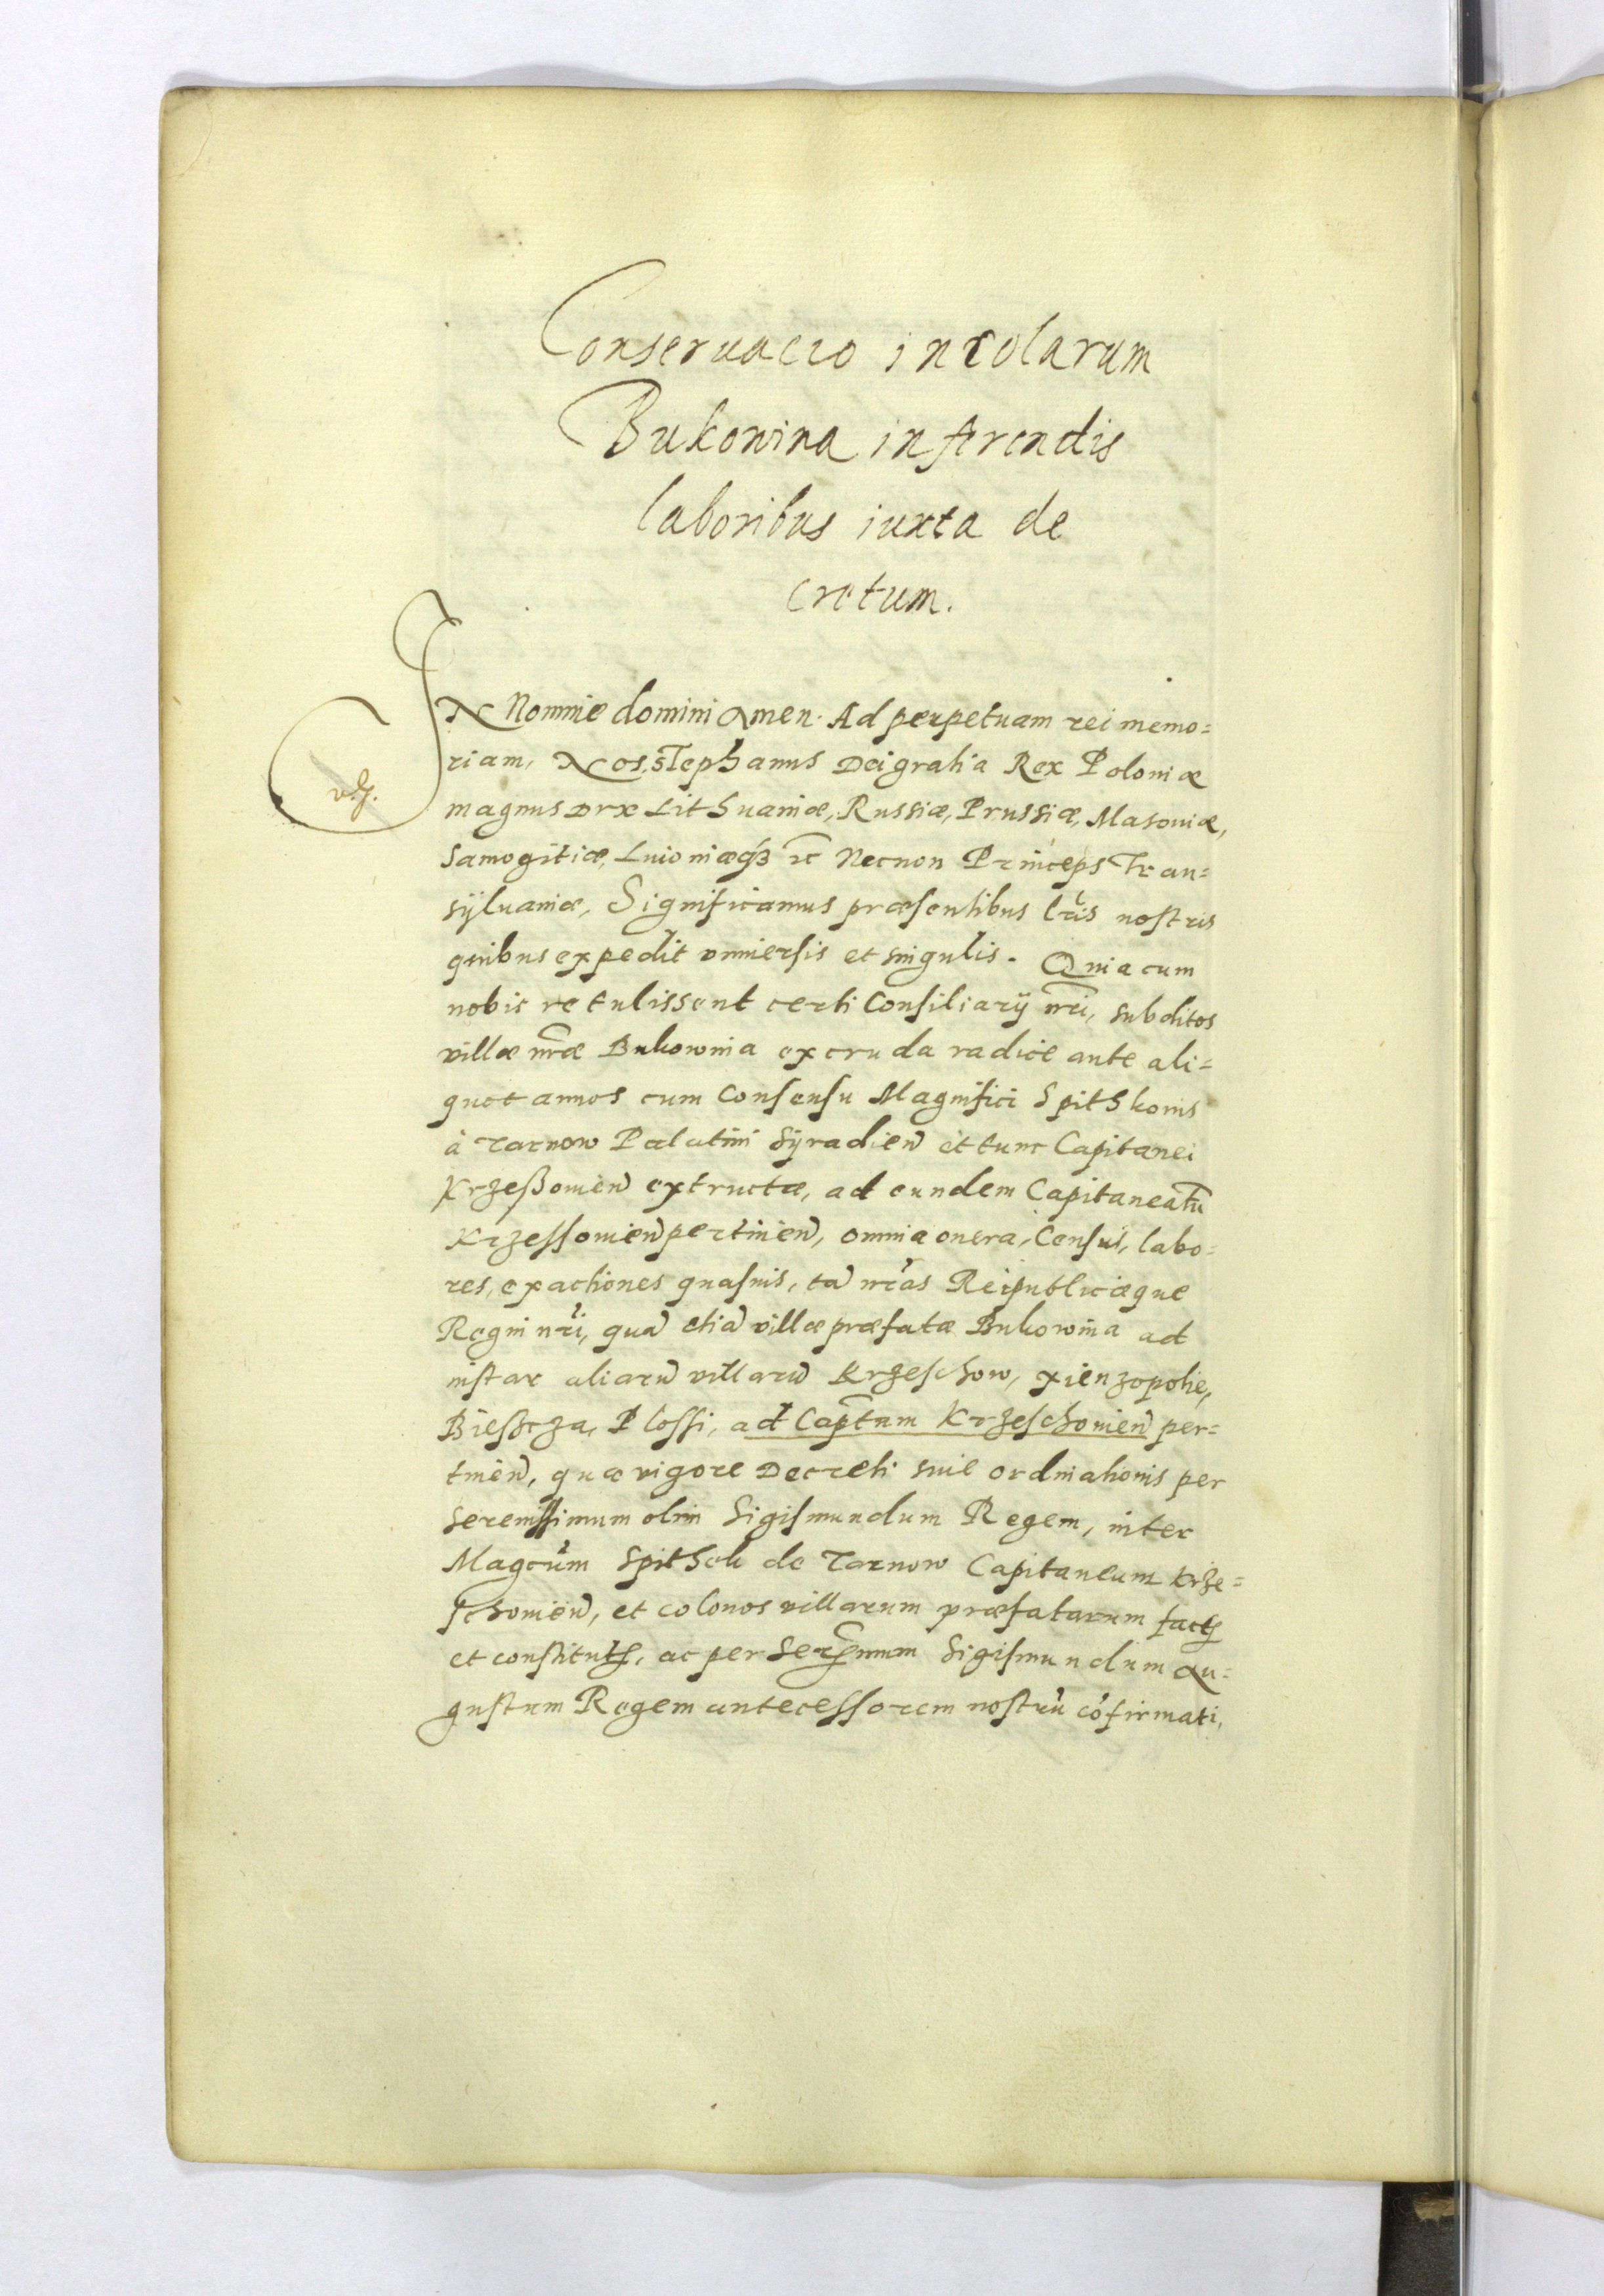 Conseruacio incolarum
Bukowina in ferendis
laboribus iuxta de
cretum.
IN Nomine domini Amen. Ad perpetuam rei memo=
riam, Nos Stephanus Dei gratia Rex Poloniæ
magnus Dux Lithuaniæ, Russiæ, Prussiæ, Masouiæ,
Samogitiæ, Liuoniæq3 ꝛc Necnon Princeps Tran=
sÿluaniæ, Significamus præsentibus lr̃is nostris
quibus expedit vniuersis et singulis. Quia cum
nobis retulissent certi Consiliarÿ nr̃i, subditos
villæ nr̃æ Bukowina ex cruda radice ante ali=
quot annos cum Consensu Magnifici Spithkonis
à Tarnow Palatini Sÿradien̄ et tunc Capitanei
Krzeßouien̄ extructæ, ad eundem Capitaneatũ
Krzessouien̄ pertinen̄, omnia onera, Census, labo=
res, exactiones quasuis, tā nr̃as Reipublicæque
Regni nr̃i, quā etiā villæ præfatæ Bukowina ad
instar aliarū villarū Krzeschow, Xienzopolie,
Biesscza, Plossi, ad Cap̃tum Krzeschouien̄ per=
tinen̄, quæ vigore Decreti siue ordinationis per
serenissimum olim Sigismundum Regem, inter
Magcūm Spithek de Tarnow Capitaneum Krze=
schouien̄, et colonos villarum præfatarum factę
et constitutę, ac per Ser̃mum Sigismundum Au=
gustum Regem antecessorem nostrū cõfirmati,